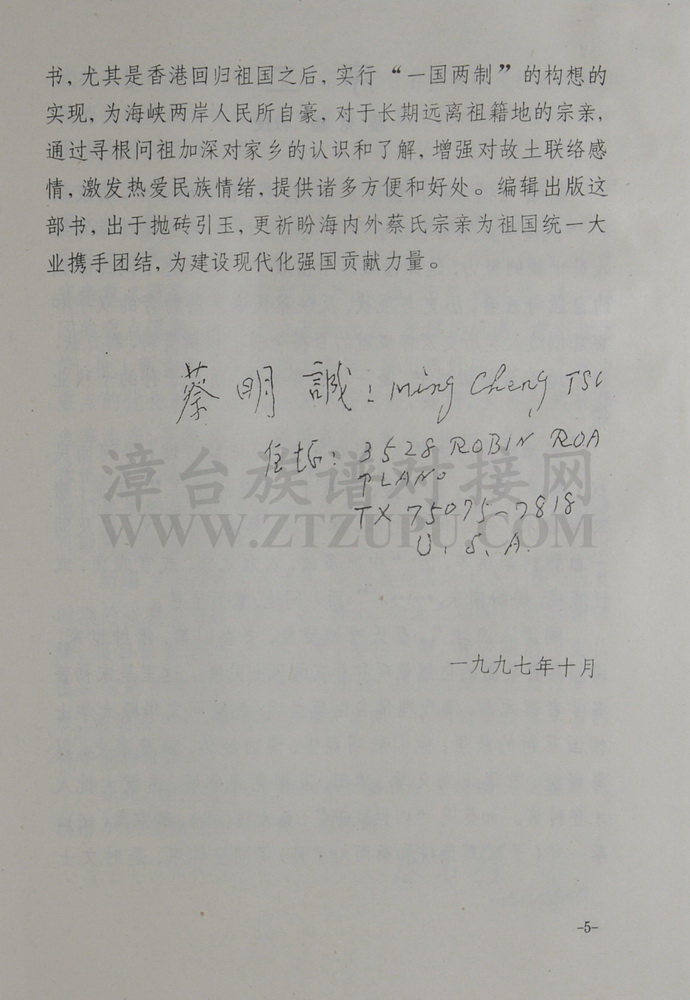 书，尤其是香港回归祖国之后，实行“一国两制”的构想的
实现，为海峡两岸人民所自豪，对于长期远离祖籍地的宗亲，
通过寻根问祖加深对家乡的认识和了解，增强对故土联络感
情，激发热爱民族情绪，提供诸多方便和好处。编辑出版这
部书，出于抛砖引玉，更祈盼海内外蔡氏宗亲为祖国统一大
业携手团结，为建设现代化强国贡献力量。
蔡明誠：Ming Cheng TSC
住址：3528 ROBIN ROA
PLANO
TX 75075-7818
U.S.A.
漳台族谱对接网
WWW.ZTZUPU.COM
一九九七年十月
-5-